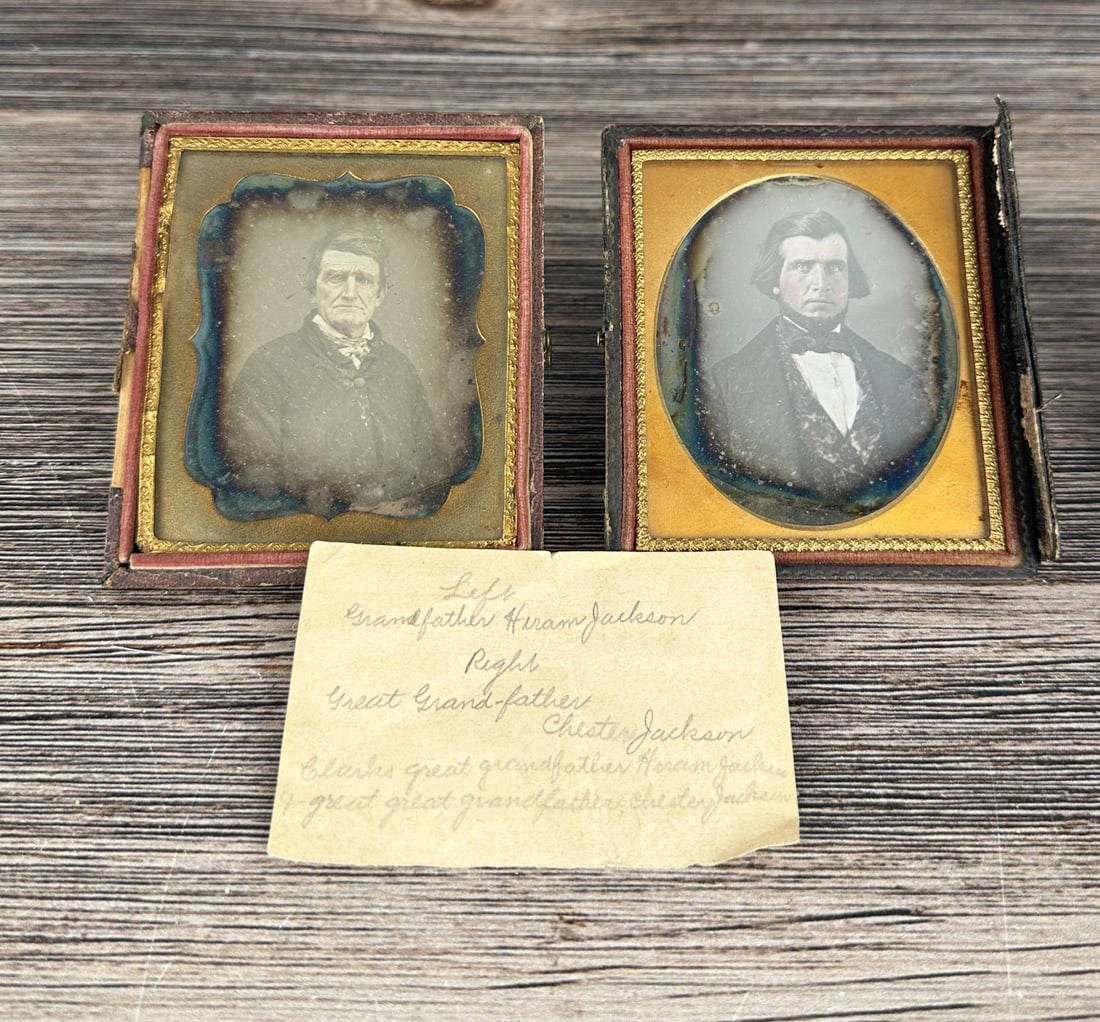 Left
Grandfather Hiram Jackson
Right
Great Grand-father
Chester Jackson
Clarks great grandfather Hiram Jackson
& great great grandfather, Chester Jackson